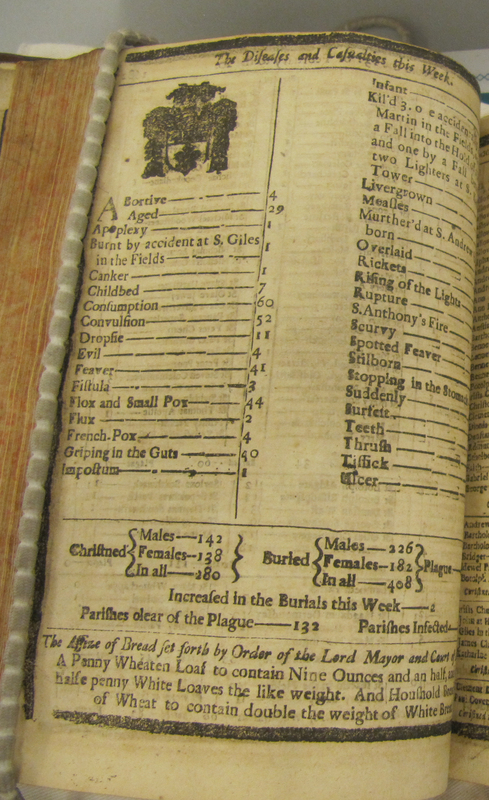 The Diseases and Casualties this Week.
ABortive 4
Aged 29
Apoplexy 1
Burnt by accident at S. Giles
in the Fields 1
Canker 1
Childbed 7
Consumption 60
Convulsion 52
Dropsie 11
Evil 4
Feaver 41
Fistula 3
Flox and Small Pox 44
Flux 2
French-Pox 4
Griping in the Guts
Impostum 1
Infant
Kil'd 3. o e acciden
Martin in the Fields
a Fall into the Hold
and one by a Fall
two Lighters at S.
Tower
Livergrown
Measles
Murther'd at S. Andrew
born
Overlaid
Rickets
Rising of the Lights
Rupture
S. Anthony's Fire
Scurvy
Spotted Feaver
Stilborn
Stopping in the Stomac
Suddenly
Surfeit
Teeth
Thrush
Tissick
Ulcer
Christned { Males 142 Females 138 In all 280 } Buried { Males 226 Females 182 In all 408 } Plague
Increased in the Burials this Week 2
Parishes clear of the Plague 132 Parishes Infected
The Assize of Bread set forth by Order of the Lord Mayor and Court of
A Penny Wheaten Loaf to contain Nine Ounces and an half,
halfe penny White Loaves the like weight. And Houshold
of Wheat to contain double the weight of White